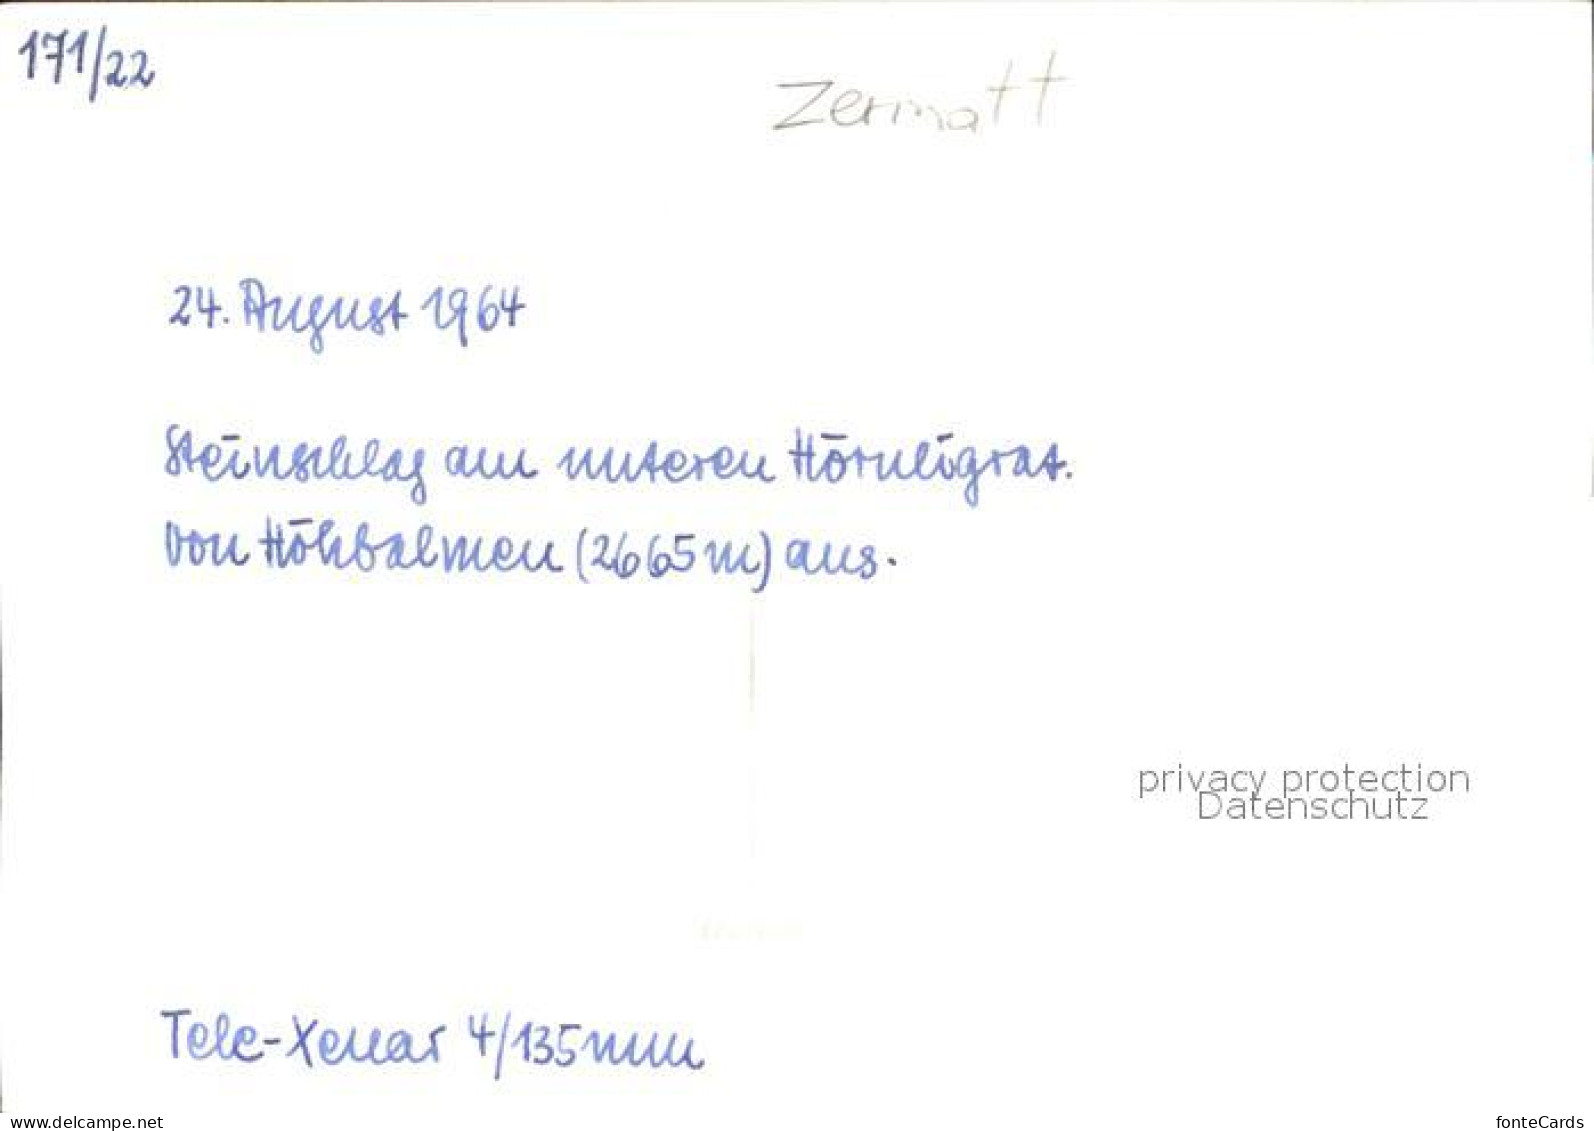 171/22
Zermatt
24. August 1964
Steinschlag am unteren Hörnligrat.
Von Höhbalmen (2665m) aus.
privacy protection
Datenschutz
Tele-Xenar 4/135mm
www.delcampe.net
fonteCards